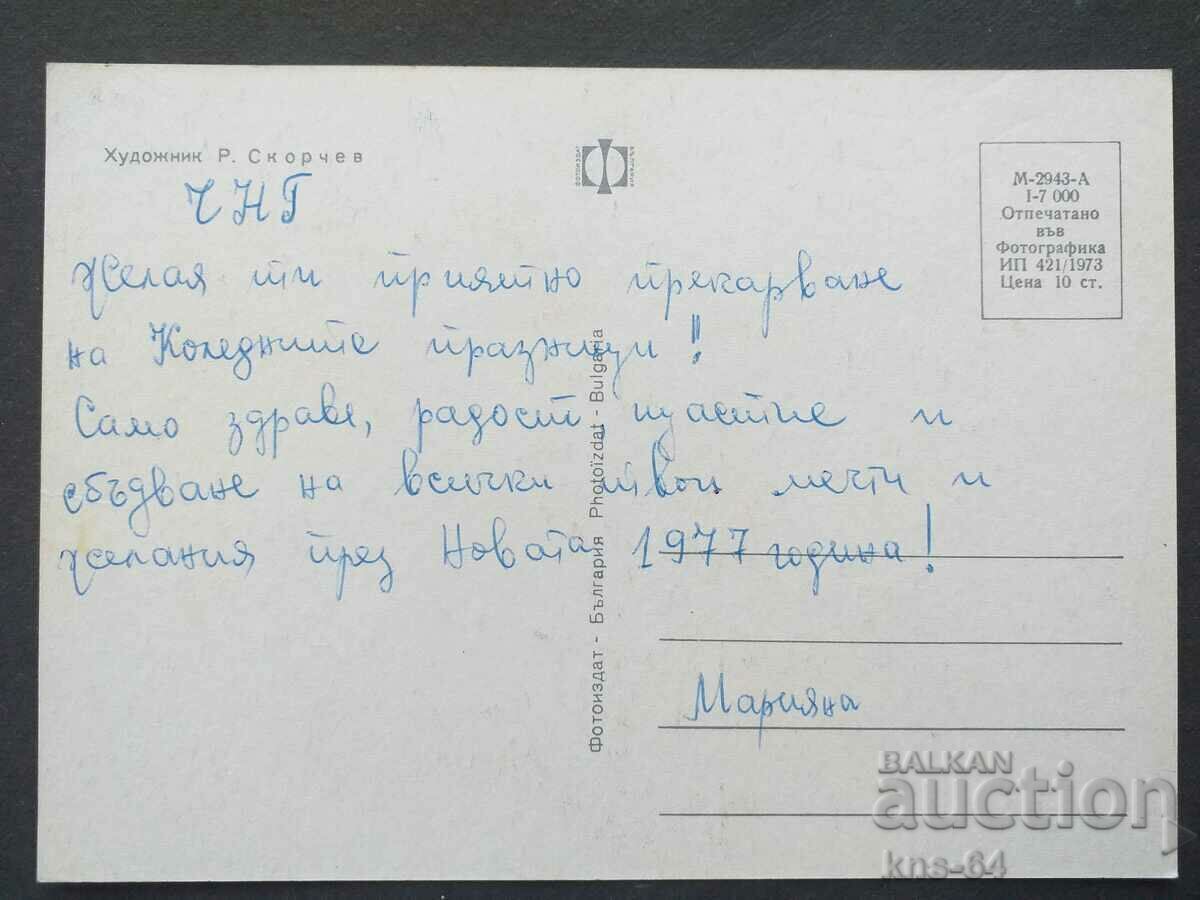 Художник Р. Скорчев
ФОТОИЗДАТ
БЪЛГАРИЯ
М-2943-А
I-7 000
Отпечатано
във
Фотографика
ИП 421/1973
Цена 10 ст.
ЧНГ
Желая ти приятно прекарване
на Коледните празници!
Само здраве, радост, щастие и
сбъдване на всички твои мечти и
желания през Новата 1977 година!
Марияна
Фотоиздат - България Photoïzdat - Bulgaria
BALKAN
auction
kns-64